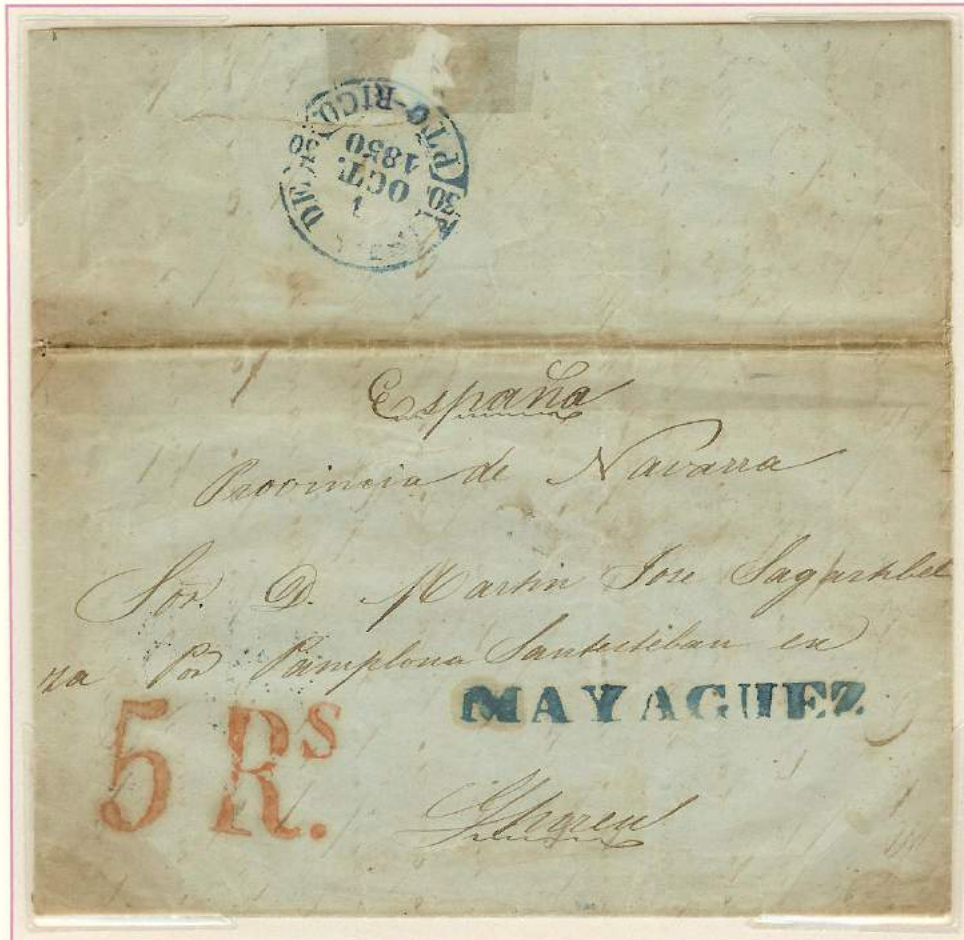 PTO-RICO.
1
OCT.
1850
España
Provincia de Navarra
Sor. D. Martin Jose
na Por Pamplona Santesteban en
MAYAGUEZ
5 Rs.